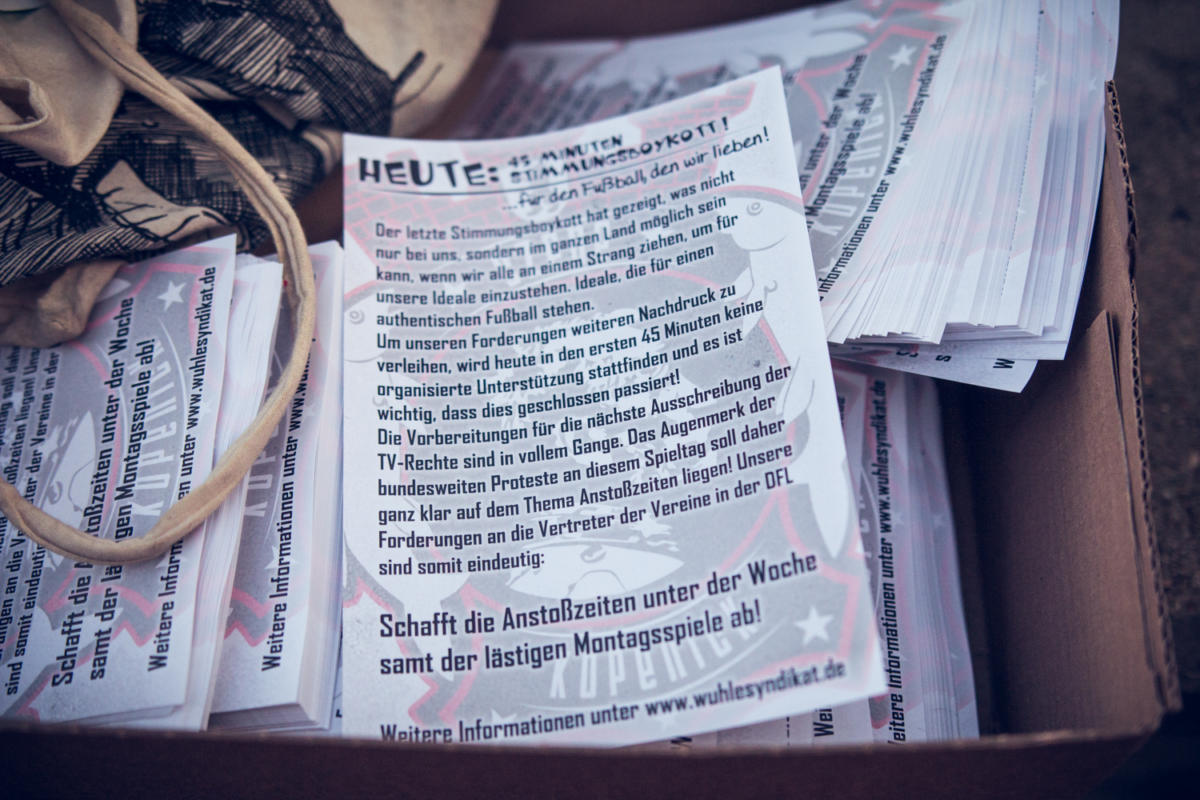 HEUTE: 45 MINUTEN
STIMMUNGSBOYKOTT!
...für den Fußball, den wir lieben!
Der letzte Stimmungsboykott hat gezeigt, was nicht
nur bei uns, sondern im ganzen Land möglich sein
kann, wenn wir alle an einem Strang ziehen, um für
unsere Ideale einzustehen. Ideale, die für einen
authentischen Fußball stehen.
Um unseren Forderungen weiteren Nachdruck zu
verleihen, wird heute in den ersten 45 Minuten keine
organisierte Unterstützung stattfinden und es ist
wichtig, dass dies geschlossen passiert!
Die Vorbereitungen für die nächste Ausschreibung der
TV-Rechte sind in vollem Gange. Das Augenmerk der
bundesweiten Proteste an diesem Spieltag soll daher
ganz klar auf dem Thema Anstoßzeiten liegen! Unsere
Forderungen an die Vertreter der Vereine in der DFL
sind somit eindeutig:
Schafft die Anstoßzeiten unter der Woche
samt der lästigen Montagsspiele ab!
Weitere Informationen unter www.wuhlesyndikat.de
KÖPENICK
der Vereine in der
sind somit eindeutig
Schafft die Anstoßzeiten unter der Woche
samt der lästigen Montagsspiele ab!
Weitere Informationen unter www.wuhlesyndikat.de
KÖPENICK
Weitere Informationen unter www.
unter der Woche
Montagsspiele ab!
Informationen unter www.wuhlesyndikat.de
KÖPENICK
Weitere Informationen unter www.wuhlesyndikat.de